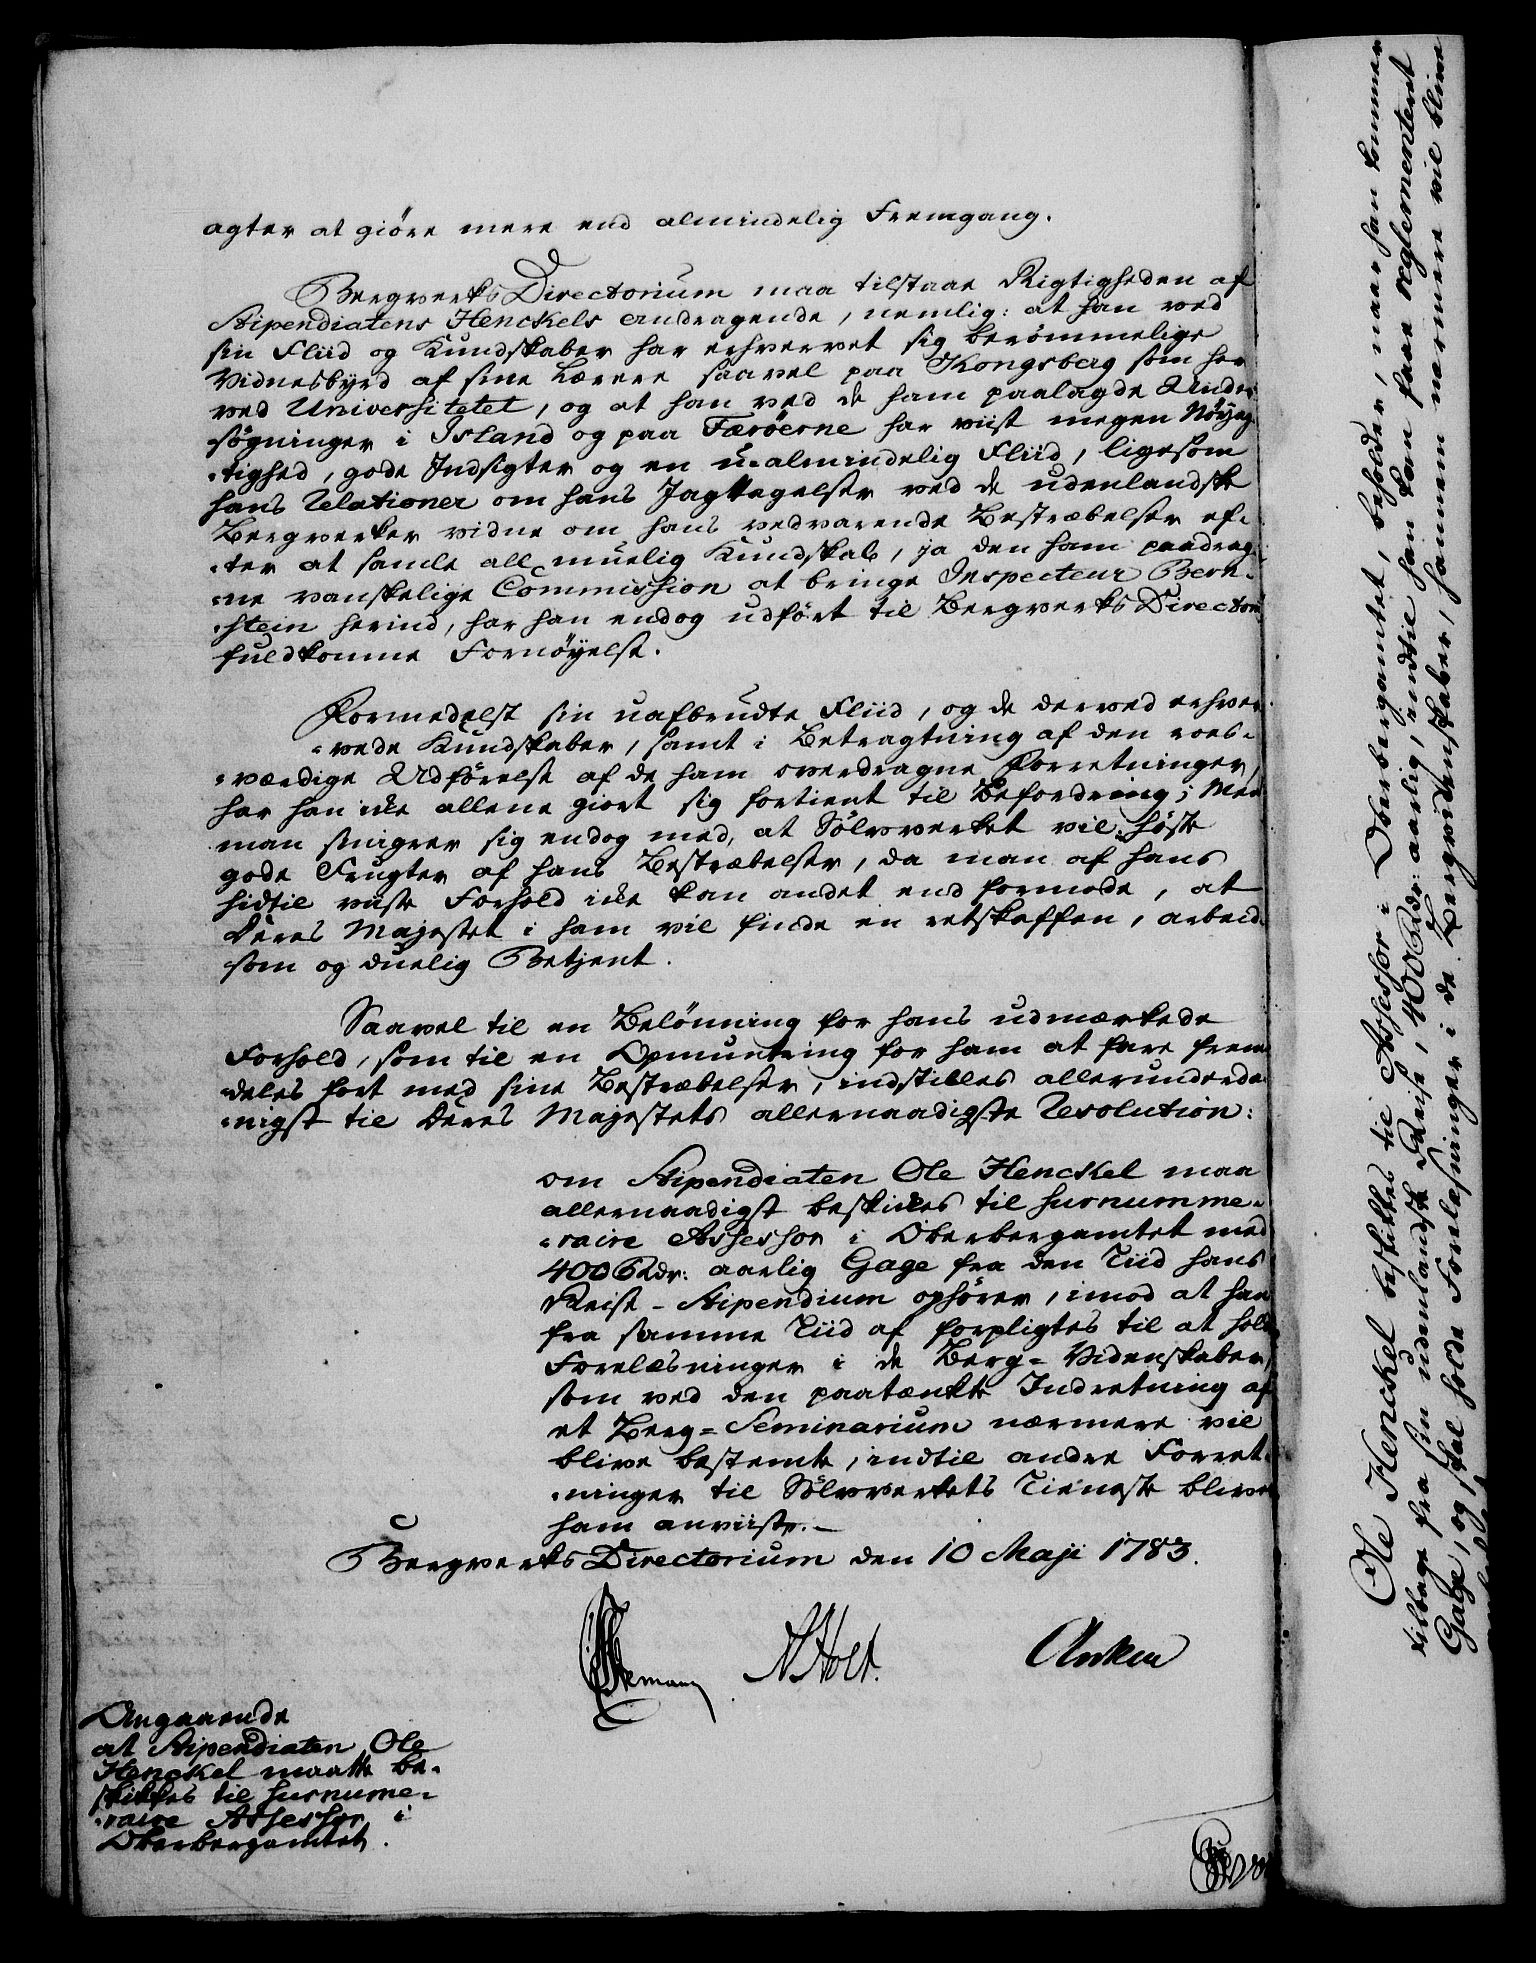 agter at giöre mere end almindelig Fremgang.
BergverksDirectorium maa tilstaae Rigtigheden af
Stipendiatens Henckels Andragende, nemlig: at han ved
sin Fliid og Kundskaber har erhvervet sig berömmelige
Vidnesbyrd af sine Lærere saavel paa Kongsberg som her
ved Universitetet, og at han ved de ham paalagde Under-
søgninger i Island og paa Færöerne har viist megen Nöyag-
-tighed, gode Indsigter og en u-almindelig Fliid, ligesom
hans Relationer om hans Jagttagelser ved de udenlandske
Bergverker vidne om hans vedvarende Bestræbelser ef-
-ter at samle all muelig Kundskab, ja den ham paadrag-
-ne vanskelige Commission at bringe Inspecteur Bern-
-stein herind, har han endog udfört til BergverksDirectorii
fuldkomne Fornöyelse.
Formedelst sin uafbrudte Fliid, og de derved erhver-
-vede Kundskaber, samt i Betragtning af den roes-
-værdige Udförelse af de ham overdragne Forretninger,
har han ikke allene giort sig fortient til Befordring; Men
man smigrer sig endog med, at Sölvverket vil höste
gode Frugter af hans Bestræbelser, da man af hans
hidtil viiste Forhold ikke kan andet end formode, at
Deres Majestet i ham vil finde en retskaffen, arbeid-
som og duelig Betjent.
Saavel til en Belönning for hans udmærkede
Forhold, som til en Opmuntring for ham at fare frem-
deles fort med sine Bestræbelser, indstilles allerunderda-
-nigst til Deres Majestets allernaadigste Resolution:
om Stipendiaten Ole Henckel maa
allernaadigst beskikkes til surnumme-
-raire Assessor i Oberbergamtet med
400 Rdr: aarlig Gage fra den Tiid hans
Reise-Stipendium ophörer, imod at han
fra samme Tiid af forpligtes til at holde
Forelæsninger i de Berg-Videnskaber,
som ved den paatænkte Indretning af
et Berg-Seminarium nærmere vil
blive bestemte, indtil andre Forret-
-ninger til Sölvverkets Tieneste bliver
ham anviiste.-
BergverksDirectorium den 10 Maji 1783.
Holt. Anker
Angaaende
at Stipendiaten Ole
Henckel maatte be-
skikkes til surnume-
-raire Assessor i
Oberbergamtet.
Ole Henckel beskikkes til Assessor i Oberbergamtet, beholder, naar han kommer
tilbage fra sin udenlandske Reise, 400 Rdr: aarlig, indtil han kan faae reglementeret
Gage, og skal holde Forelæsninger i de Bergvidenskaber, hannem nærmere vil blive